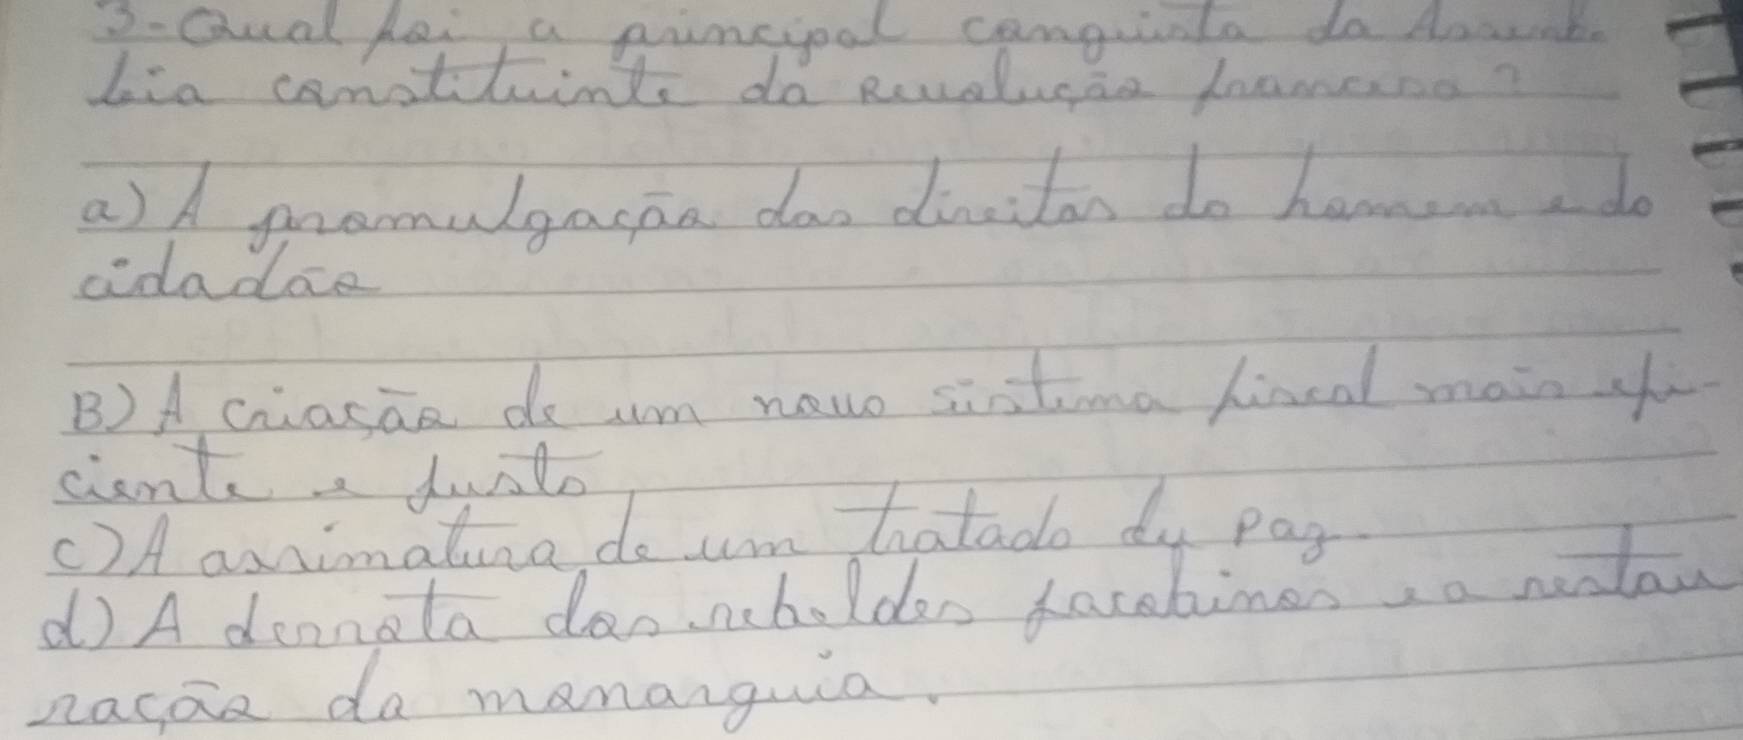 3-Qual foi a principal conquista da Assemb-
leia constituinte da Revolução francesa?
a) A promulgação dos direitos do homem e do
cidadão
B) A criação de um novo sistema fiscal mais efi-
ciente e justo
c) A assimatura de um tratado de paz.
d) A derrota dos rebeldes jacobinos e a restau
ração da monarquia.